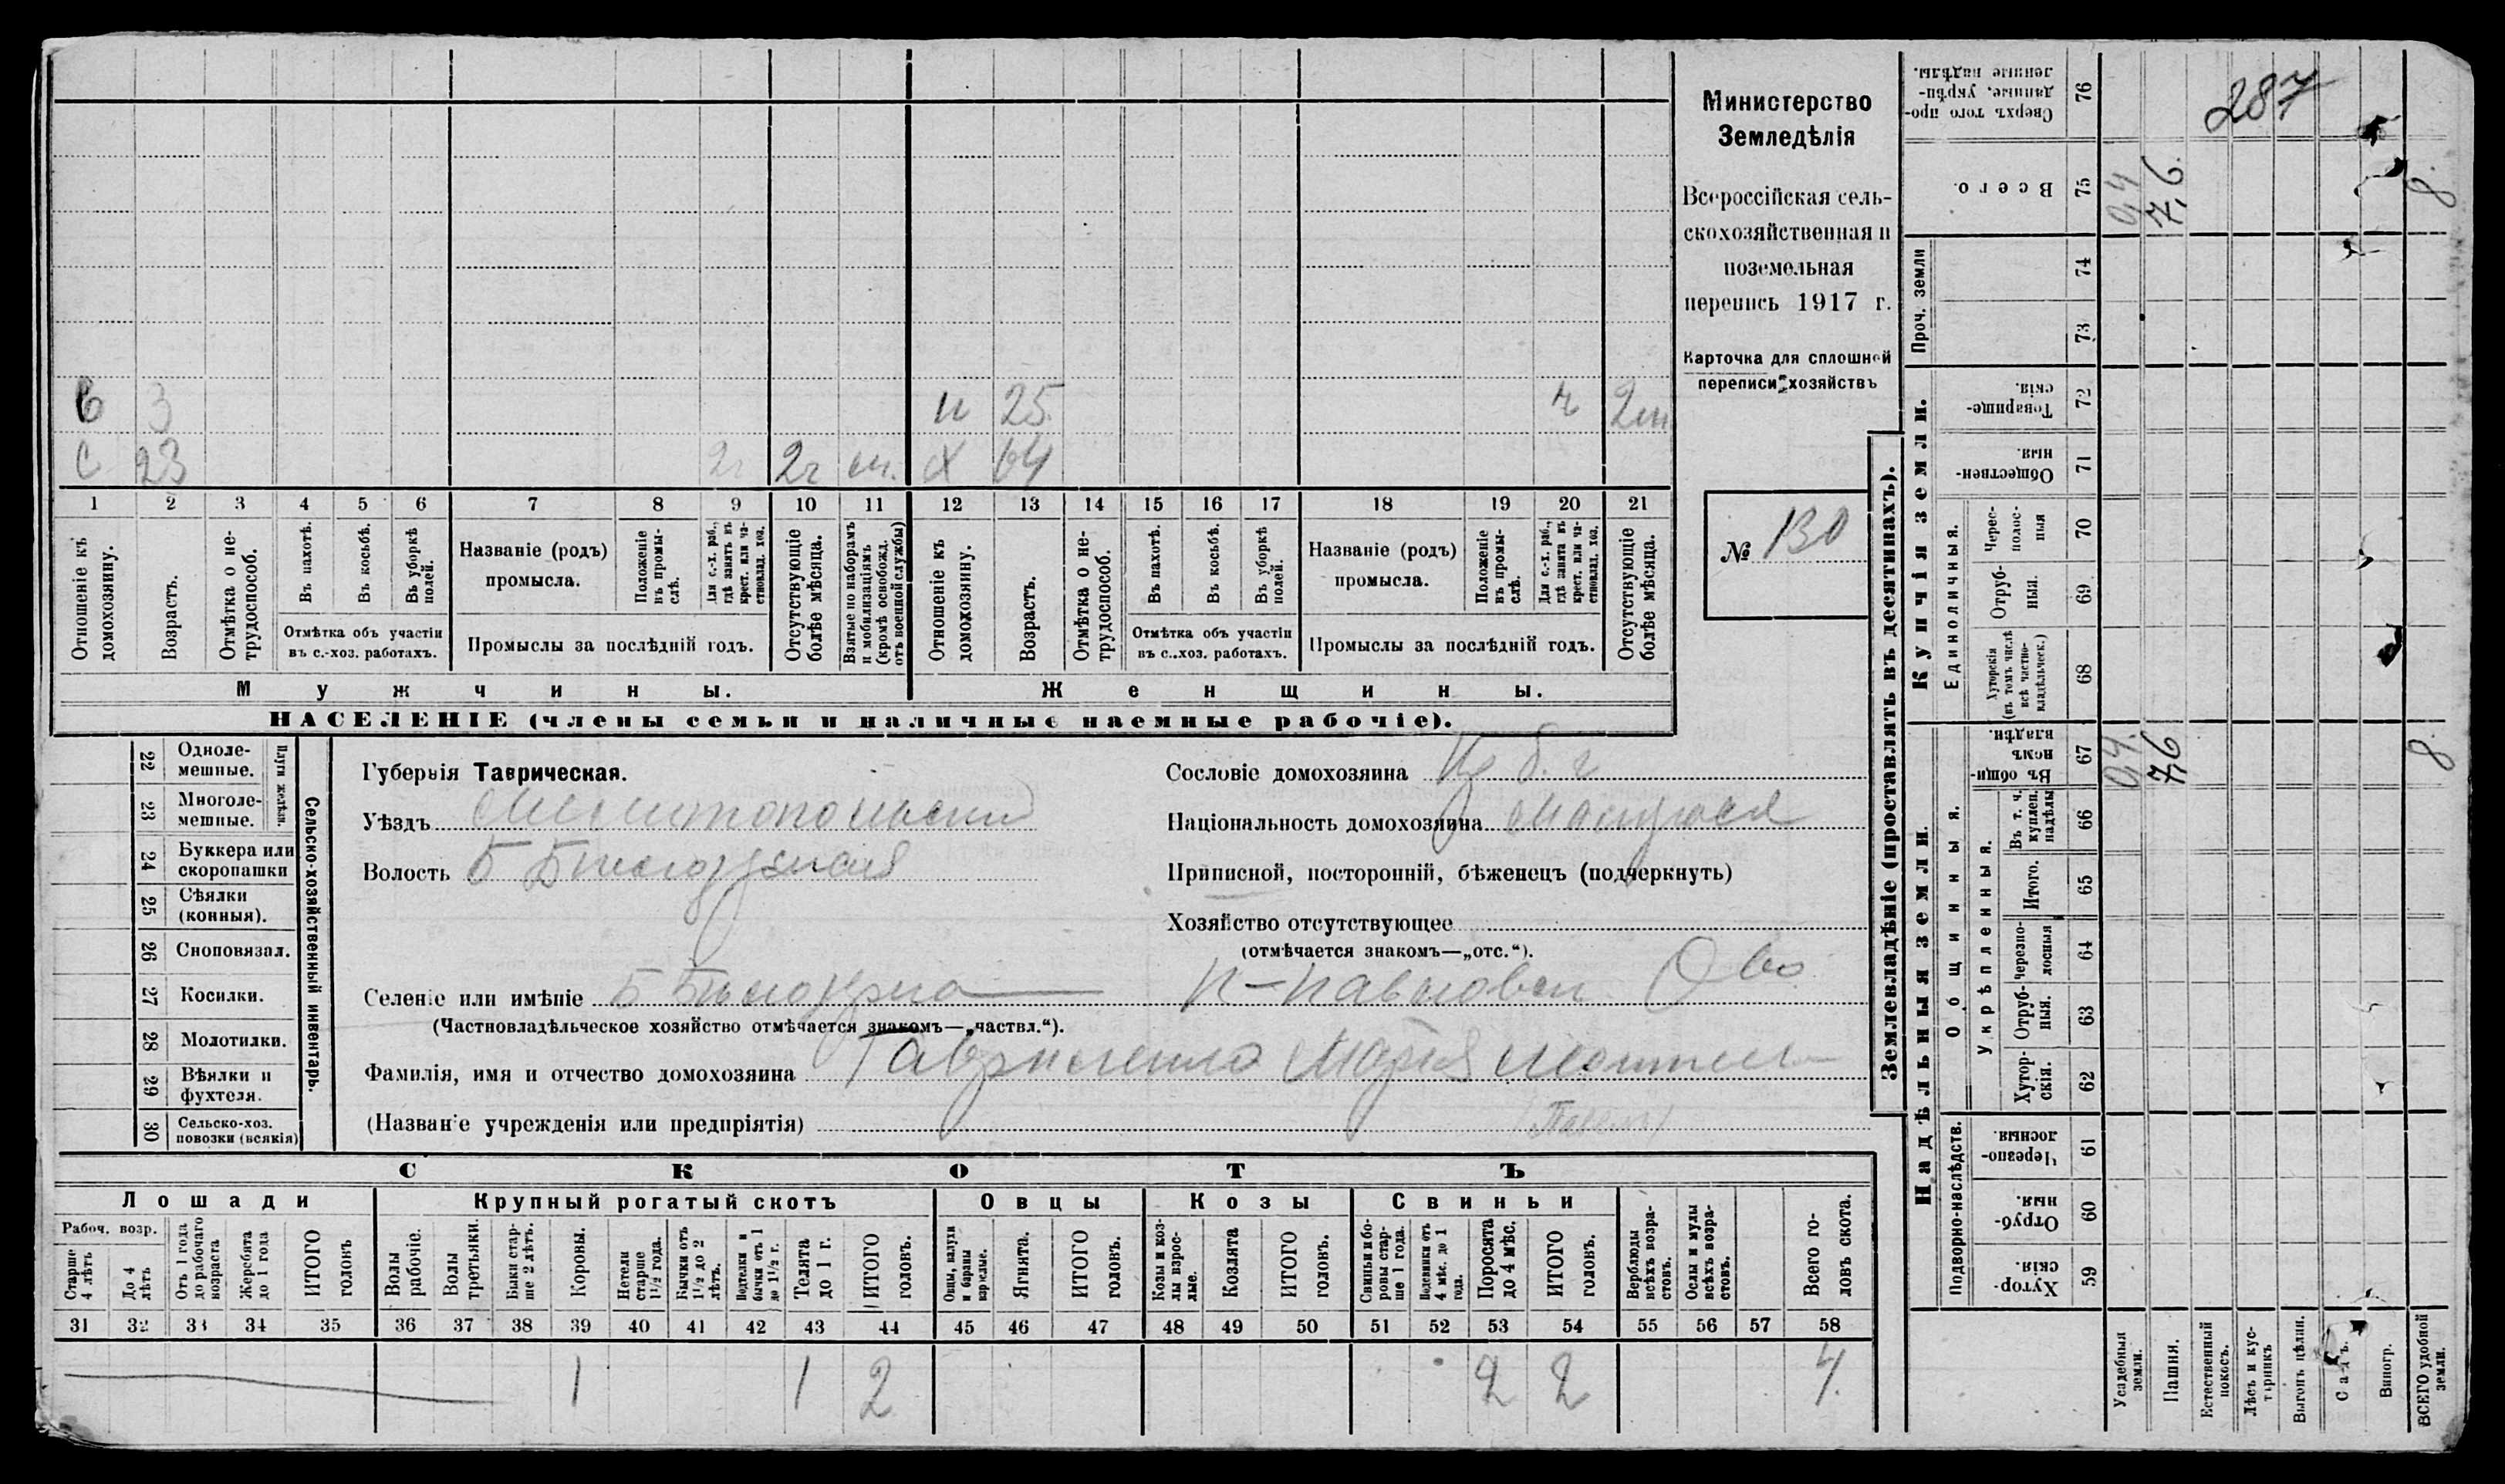 Министерство
Земледѣлія
Всероссійская сель-
скохозяйственная и
поземельная
перепись 1917 г.
Карточка для сплошной
переписи хозяйствъ
№ 130
287
С 3 25 2 м
С 23 2 г 2 г Х 64
1 2 3 4 5 6 7 8 9 10 11 12 13 14 15 16 17 18 19 20 21
Отношеніе къ домохозяину.
Возрастъ.
Отмѣтка о не-трудоспособ.
Въ пахотѣ.
Въ косьбѣ.
Въ уборкѣ полей.
Отмѣтка объ участіи
въ с.-хоз. работахъ.
Названіе (родъ)
промысла.
Положеніе въ промы-слѣ.
Для с.-х. раб., гдѣ занятъ въ крест. или ча-стновлад. хоз.
Промыслы за послѣдній годъ.
Отсутствующіе болѣе мѣсяца.
Взятые по наборамъ и мобилизаціямъ (кромѣ освобожд. отъ военной службы)
Отношеніе къ домохозяину.
Возрастъ.
Отмѣтка о не-трудоспособ.
Въ пахотѣ.
Въ косьбѣ.
Въ уборкѣ полей.
Отмѣтка объ участіи
въ с.-хоз. работахъ.
Названіе (родъ)
промысла.
Положеніе въ промы-слѣ.
Для с.-х. раб., гдѣ занята въ крест. или ча-стновлад. хоз.
Промыслы за послѣдній годъ.
Отсутствующіе болѣе мѣсяца.
Мужчины.
Женщины.
НАСЕЛЕНІЕ (члены семьи и наличные наемные рабочіе).
22 Одноле-мешные.
23 Многоле-мешные.
Плуги желѣзн.
24 Буккера или скоропашки
25 Сѣялки (конныя).
26 Сноповязал.
27 Косилки.
28 Молотилки.
29 Вѣялки и фухтеля.
30 Сельско-хоз. повозки (всякія)
Сельско-хозяйственный инвентарь.
Губернія Таврическая.
Уѣздъ Мелитопольскій
Волость Б Бѣлозерская
Селеніе или имѣніе Б Бѣлозерка П-Павловск. О во
(Частновладѣльческое хозяйство отмѣчается знакомъ—„частвл.“).
Фамилія, имя и отчество домохозяина Гавриленко Мария
(Названіе учрежденія или предпріятія) (Павелъ)
Сословіе домохозяина
Національность домохозяина малорос.
Приписной, посторонній, бѣженецъ (подчеркнуть)
Хозяйство отсутствующее
(отмѣчается знакомъ—„отс.“).
СКОТЪ
Лошади
Крупный рогатый скотъ
Овцы
Козы
Свиньи
Рабоч. возр.
Старше 4 лѣтъ
До 4 лѣтъ
Отъ 1 года до рабочаго возраста
Жеребята до 1 года
ИТОГО головъ
Волы рабочіе.
Волы третьяки.
Быки стар-ше 2 лѣтъ.
Коровы.
Нетели старше 1½ года.
Бычки отъ 1½ до 2 лѣтъ.
Подтелки и бычки отъ 1 до 1½ г.
Телята до 1 г.
ИТОГО головъ.
Овцы, валухи и бараны взрослые.
Ягнята.
ИТОГО головъ.
Козы и коз-лы взрос-лые.
Козлята
ИТОГО головъ.
Свиньи и бо-ровы стар-ше 1 года.
Подсвинки отъ 4 мѣс. до 1 года.
Поросята до 4 мѣс.
ИТОГО головъ.
Верблюды всѣхъ возра-стовъ.
Ослы и мулы всѣхъ возра-стовъ.
Всего го-ловъ скота.
31 32 33 34 35 36 37 38 39 40 41 42 43 44 45 46 47 48 49 50 51 52 53 54 55 56 57 58
1 1 2 2 2 4
Землевладѣніе (проставлять въ десятинахъ).
Надѣльныя земли.
Купчія земли.
Проч. земли
76 Сверхъ того про-данные, укрѣп-ленные надѣлы.
75 Всего. 0,4 7,6 8
74
73
72 Товарище-скія.
71 Обществен-ныя.
Единоличныя.
70 Черес-полос-ныя
69 Отруб-ныя.
68 Хуторскія (въ томъ числѣ всѣ частно-владѣльческ.)
67 Въ общин-номъ владѣн. 0,4 7,6 8
Общинныя.
Укрѣпленныя.
66 Въ т. ч. куплен. надѣлы
65 Итого.
64 Черезпо-лосныя
63 Отруб-ныя.
62 Хутор-скія.
Подворно-наслѣдств.
61 Черезпо-лосныя.
60 Отруб-ныя.
59 Хутор-скія.
Усадебныя земли.
Пашня.
Естественный покосъ.
Лѣсъ и кус-тарникъ
Выгонъ цѣлин.
Садъ.
Виногр.
ВСЕГО удобной земли.